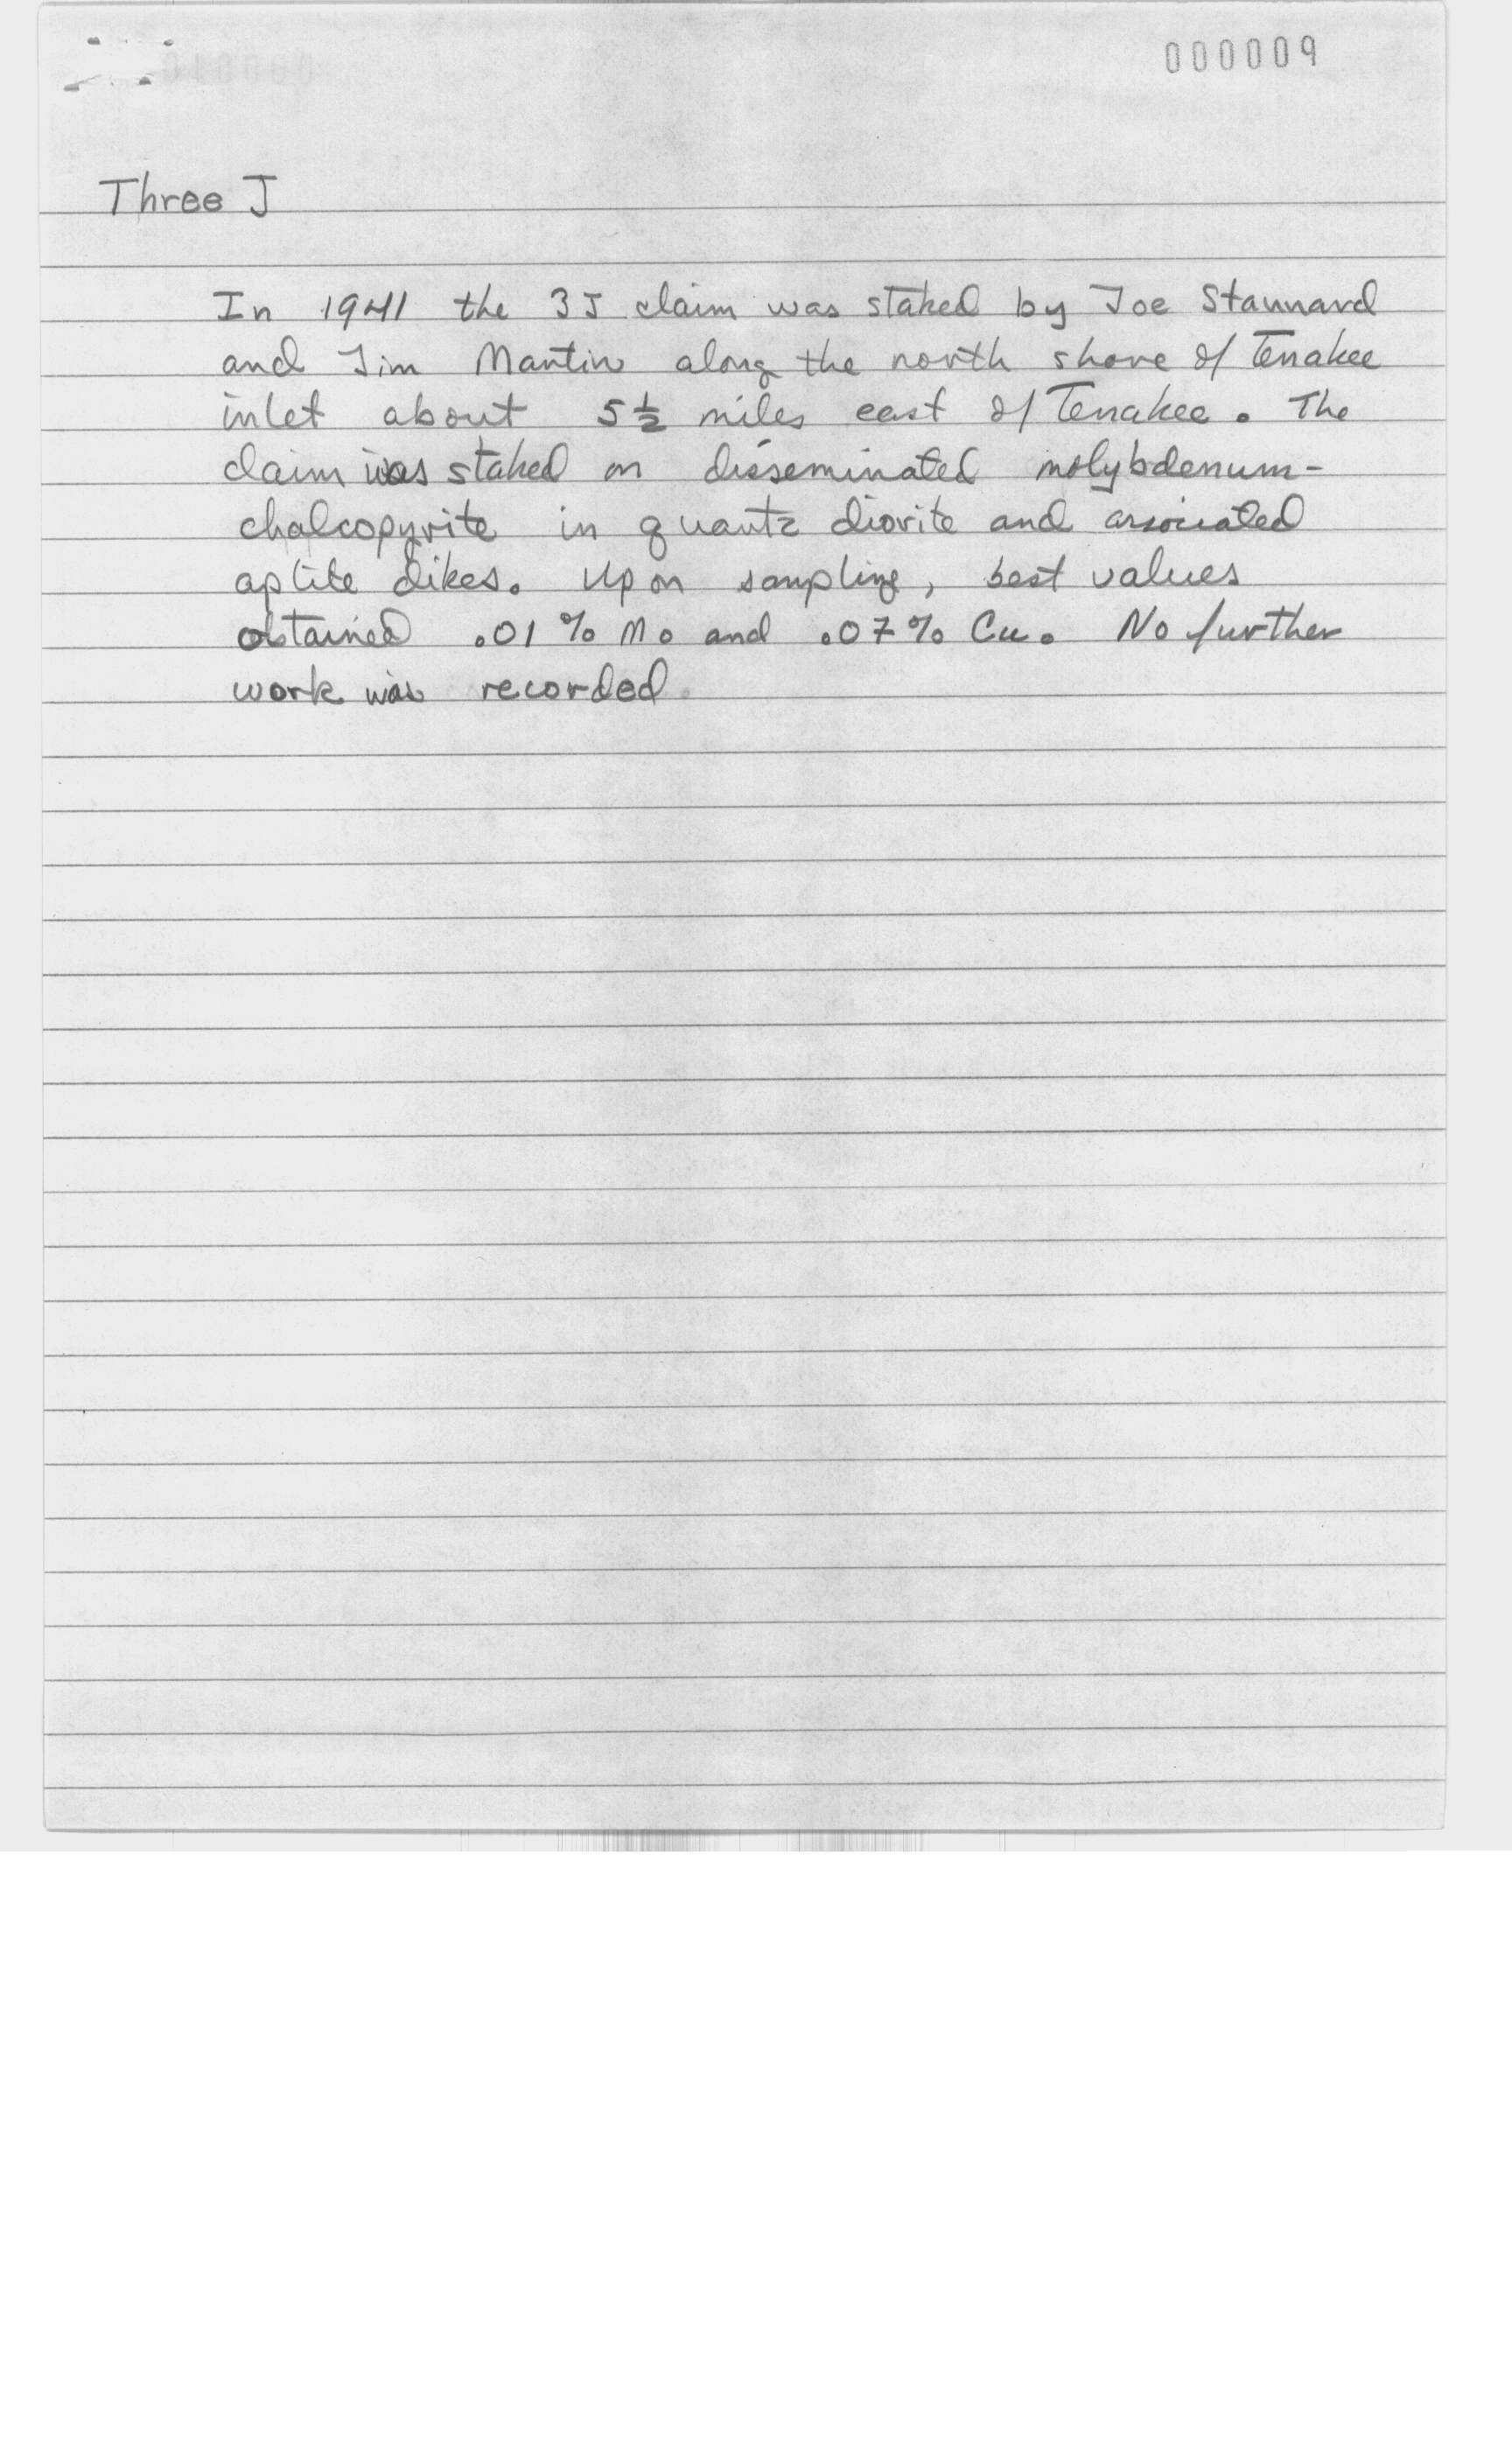 000009
Three J
In 1941 the 3J claim was staked by Joe Stannard
and Jim Martin along the north shore of Tenakee
inlet about 5½ miles east of Tenakee. The
claim was staked on disseminated molybdenum-
chalcopyrite in quartz diorite and associated
aplite dikes. Upon sampling, best values
obtained .01% Mo and .07% Cu. No further
work was recorded.